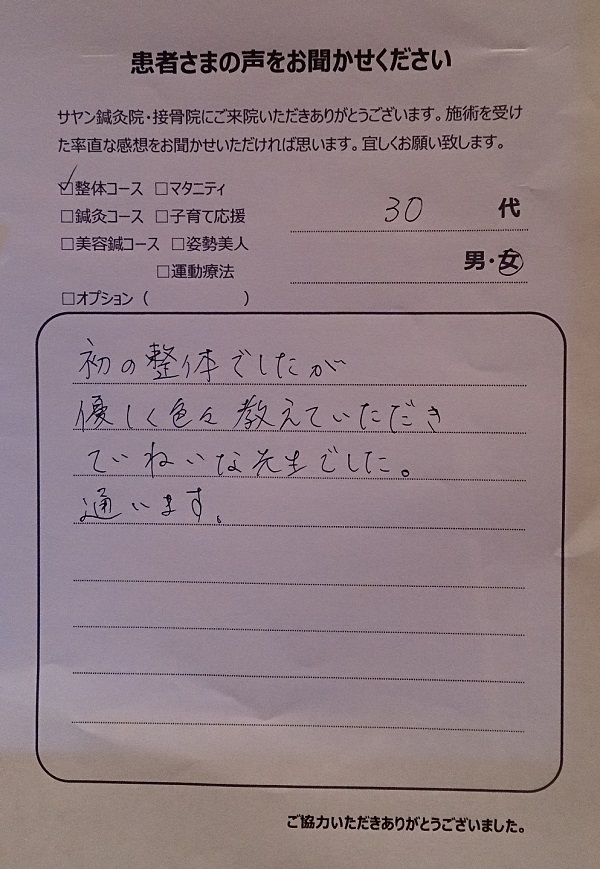 患者さまの声をお聞かせください
サヤン鍼灸院・接骨院にご来院いただきありがとうございます。施術を受け
た率直な感想をお聞かせいただければ思います。宜しくお願い致します。
☑整体コース □マタニティ
□鍼灸コース □子育て応援
30 代
□美容鍼コース □姿勢美人
男・女
□運動療法
□オプション（ ）
初の整体でしたが
優しく色々教えていただき
ていねいな先生でした。
通います。
ご協力いただきありがとうございました。